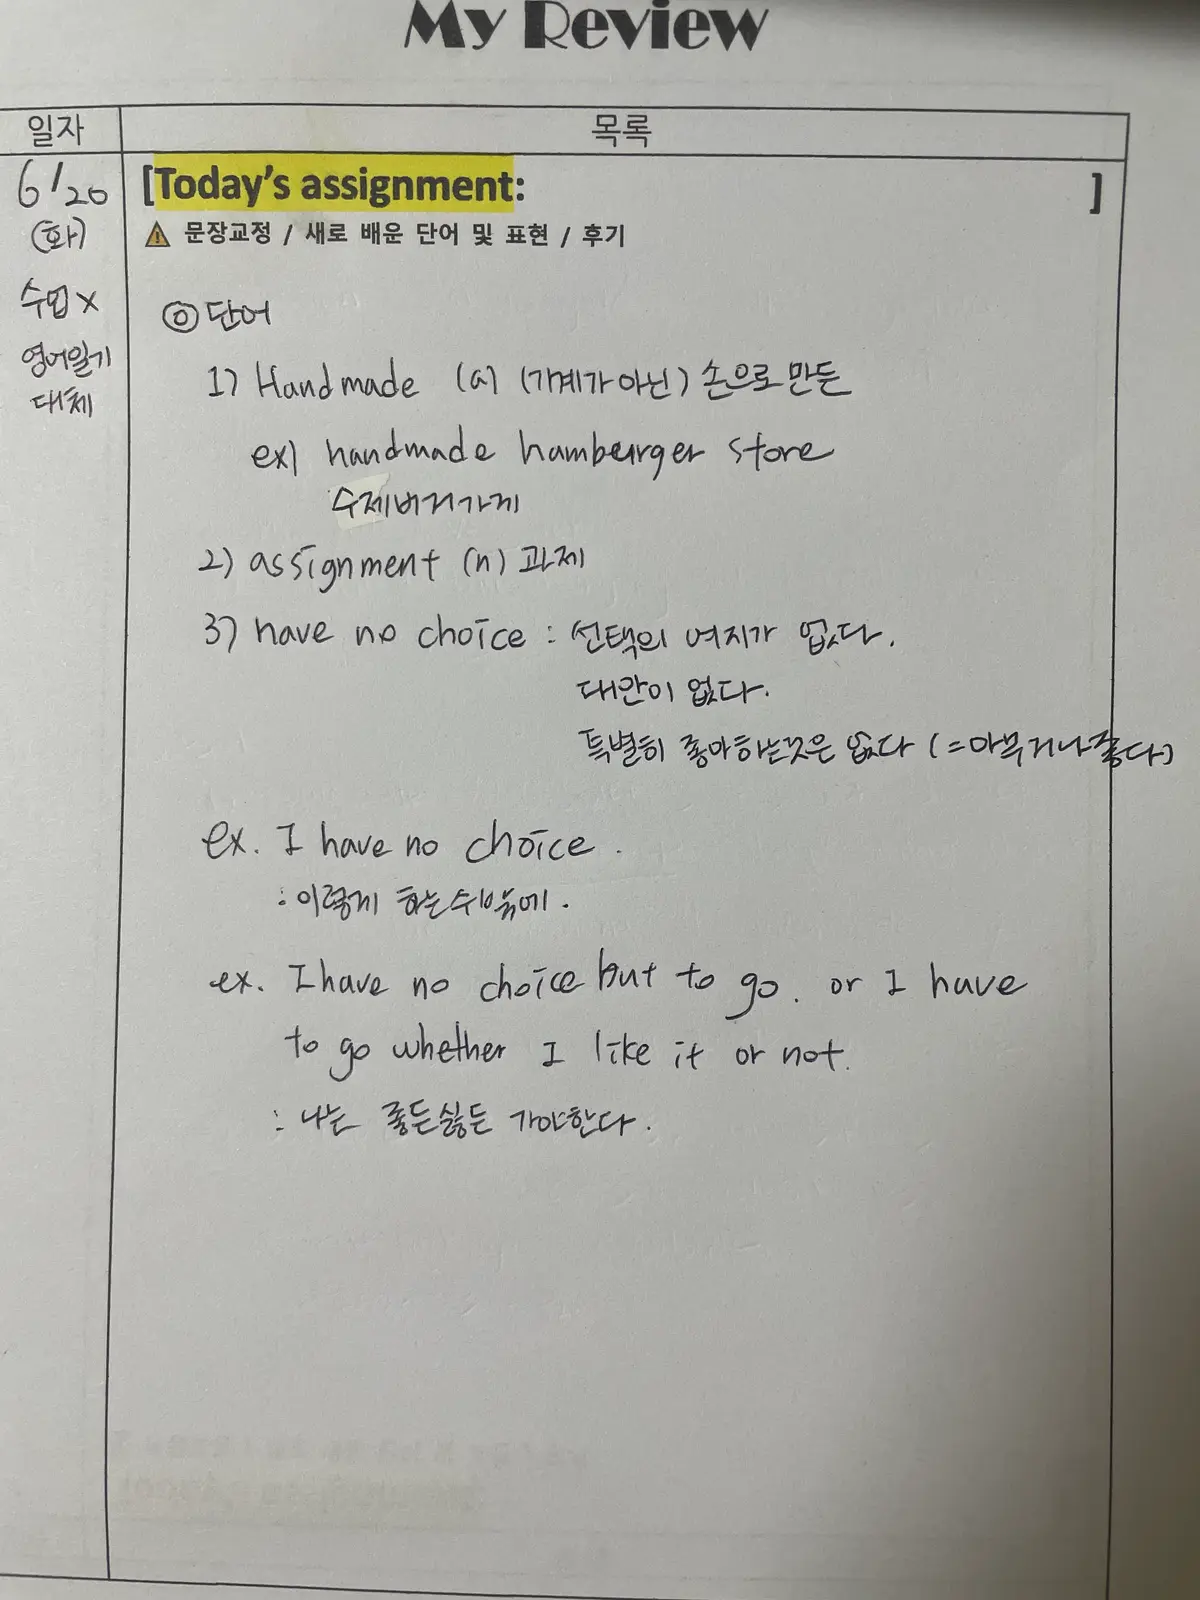 My Review
일자 목록
6/20 [Today's assignment: ]
(화) ⚠ 문장교정 / 새로 배운 단어 및 표현 / 후기
수업X
영어일기
대체
◎ 단어
1) Handmade (a) (기계가 아닌) 손으로 만든
ex) handmade hamburger store
수제버거가게
2) assignment (n) 과제
3) have no choice : 선택의 여지가 없다.
대안이 없다.
특별히 좋아하는것은 없다 (=아무거나좋다)
ex. I have no choice.
: 이렇게 하는수밖에.
ex. I have no choice but to go. or I have
to go whether I like it or not.
: 나는 좋든싫든 가야한다.